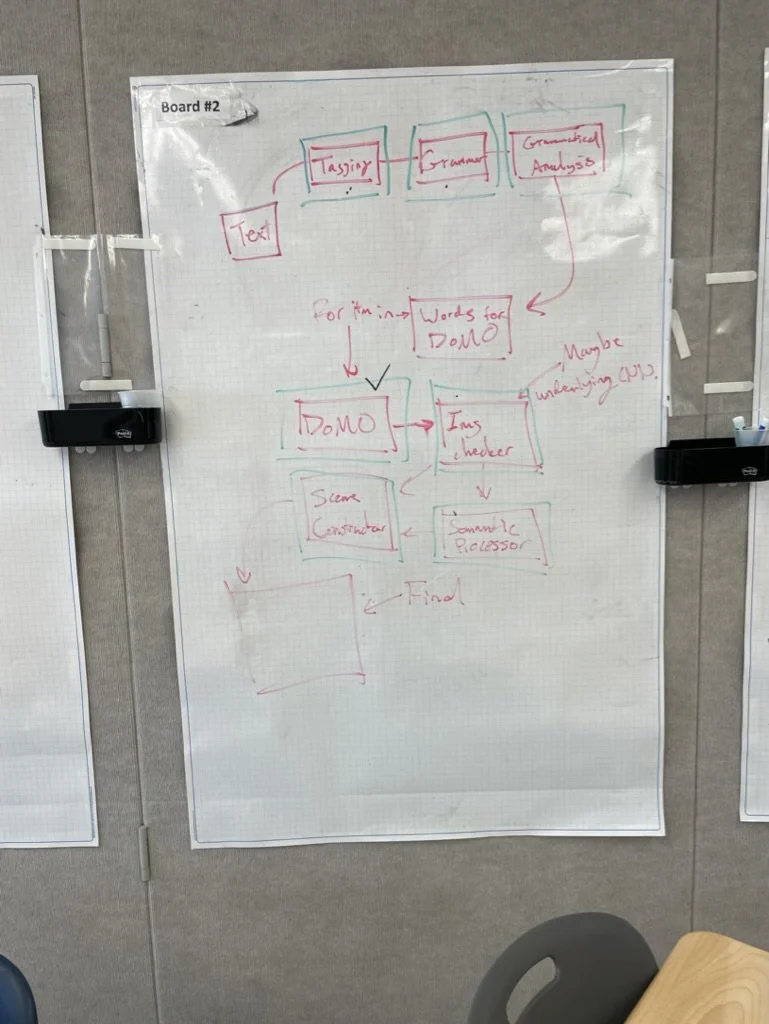 Board #2
Tagging
Grammar
Grammatical
Analysis
Text
For itm in
Words for
DoMO
Maybe
underlying (NN).
DoMO
Img
checker
Scene
Constructor
Semantic
Processor
Final